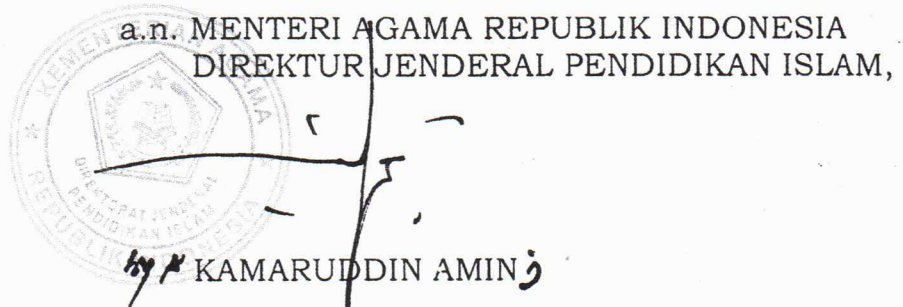 a.n. MENTERI AGAMA REPUBLIK INDONESIA
DIREKTUR JENDERAL PENDIDIKAN ISLAM,
KEMENTERIAN AGAMA
DIREKTORAT JENDERAL
PENDIDIKAN ISLAM
REPUBLIK INDONESIA
KAMARUDDIN AMIN